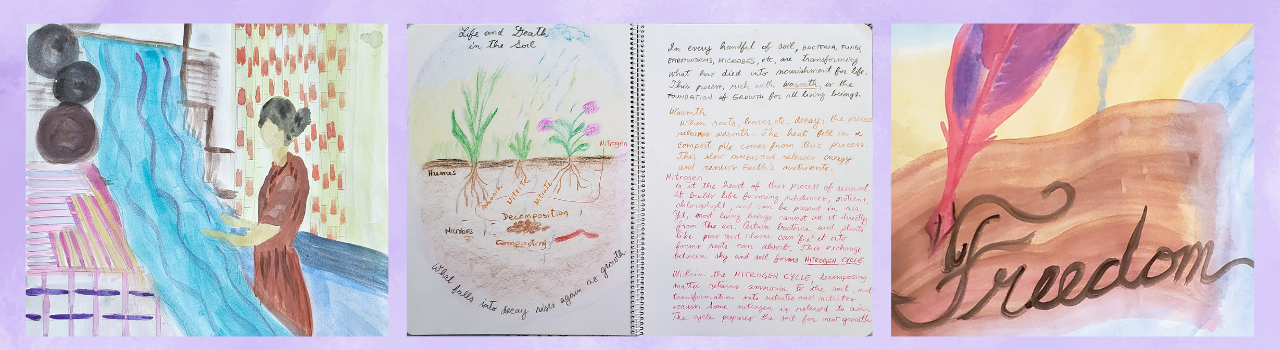 Life and Death
in the Soil
Nitrogen
Humes
Ammonia
Nitrite
Nitrate
Decomposition
Microbes
Composting
What falls into decay rises again as growth
In every handful of soil, BACTERIA, FUNGI,
EARTHWORMS, MICROBES, etc, are transforming
what has died into nourishment for life.
This process, rich with warmth, is the
FOUNDATION OF GROWTH for all living beings.
Warmth
When roots, leaves, etc, decay, the process
releases warmth. The heat felt in a
compost pile comes from this process.
This slow combustion releases energy
and renews Earth's nutrients.
Nitrogen
is at the heart of this process of renewal.
It builds life forming substances, proteins,
chlorophyll, and can be present in air.
Yet, most living beings cannot use it directly
from the air. Certain bacteria and plants
like peas and clover can "fix" it into
forms roots can absorb. This exchange
between sky and soil forms NITROGEN CYCLE.
Within the NITROGEN CYCLE, decomposing
matter returns ammonia to the soil and
transformation into nitrates and nitrites
occurs. Some nitrogen is released to
The cycle prepares the soil for new growth
Freedom